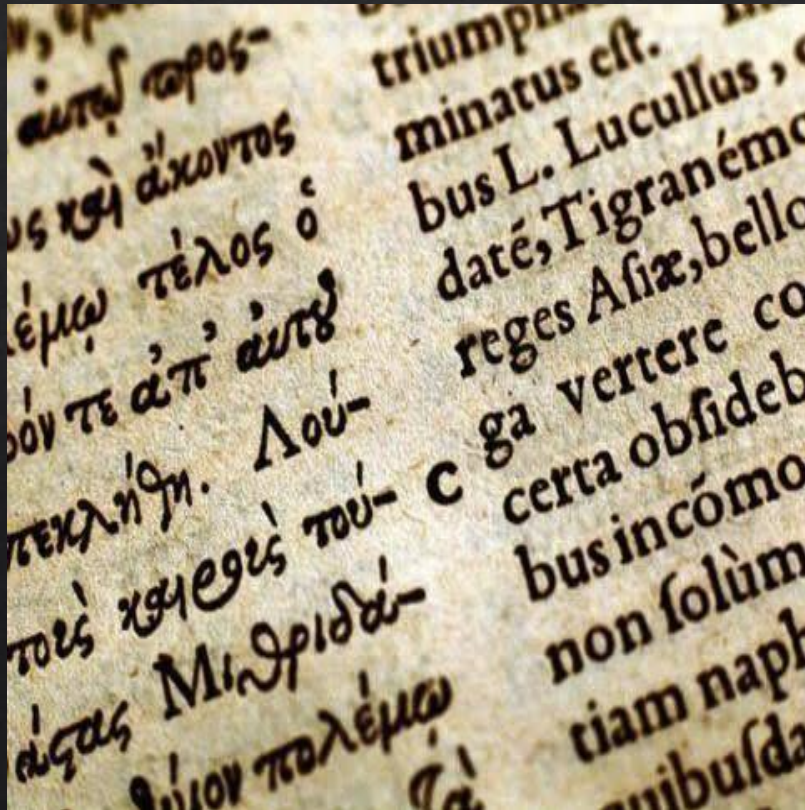 αὐτῷ προσ-
ως καὶ ἄκοντος
έμῳ τέλος ὁ
όν τε ἀπ' αὐτοῦ
πεκλήθη. Λού-
τοὺς καιροὺς τού-
άξας Μιθριδά-
πολέμῳ
Τὰ
triumpha
minatus eſt.
bus L. Lucullus,
daté, Tigranémq
reges Aſiæ, bello
C
ga vertere co
certa obſideb
bus incómo
non ſolùm
tiam naph
quibuſda